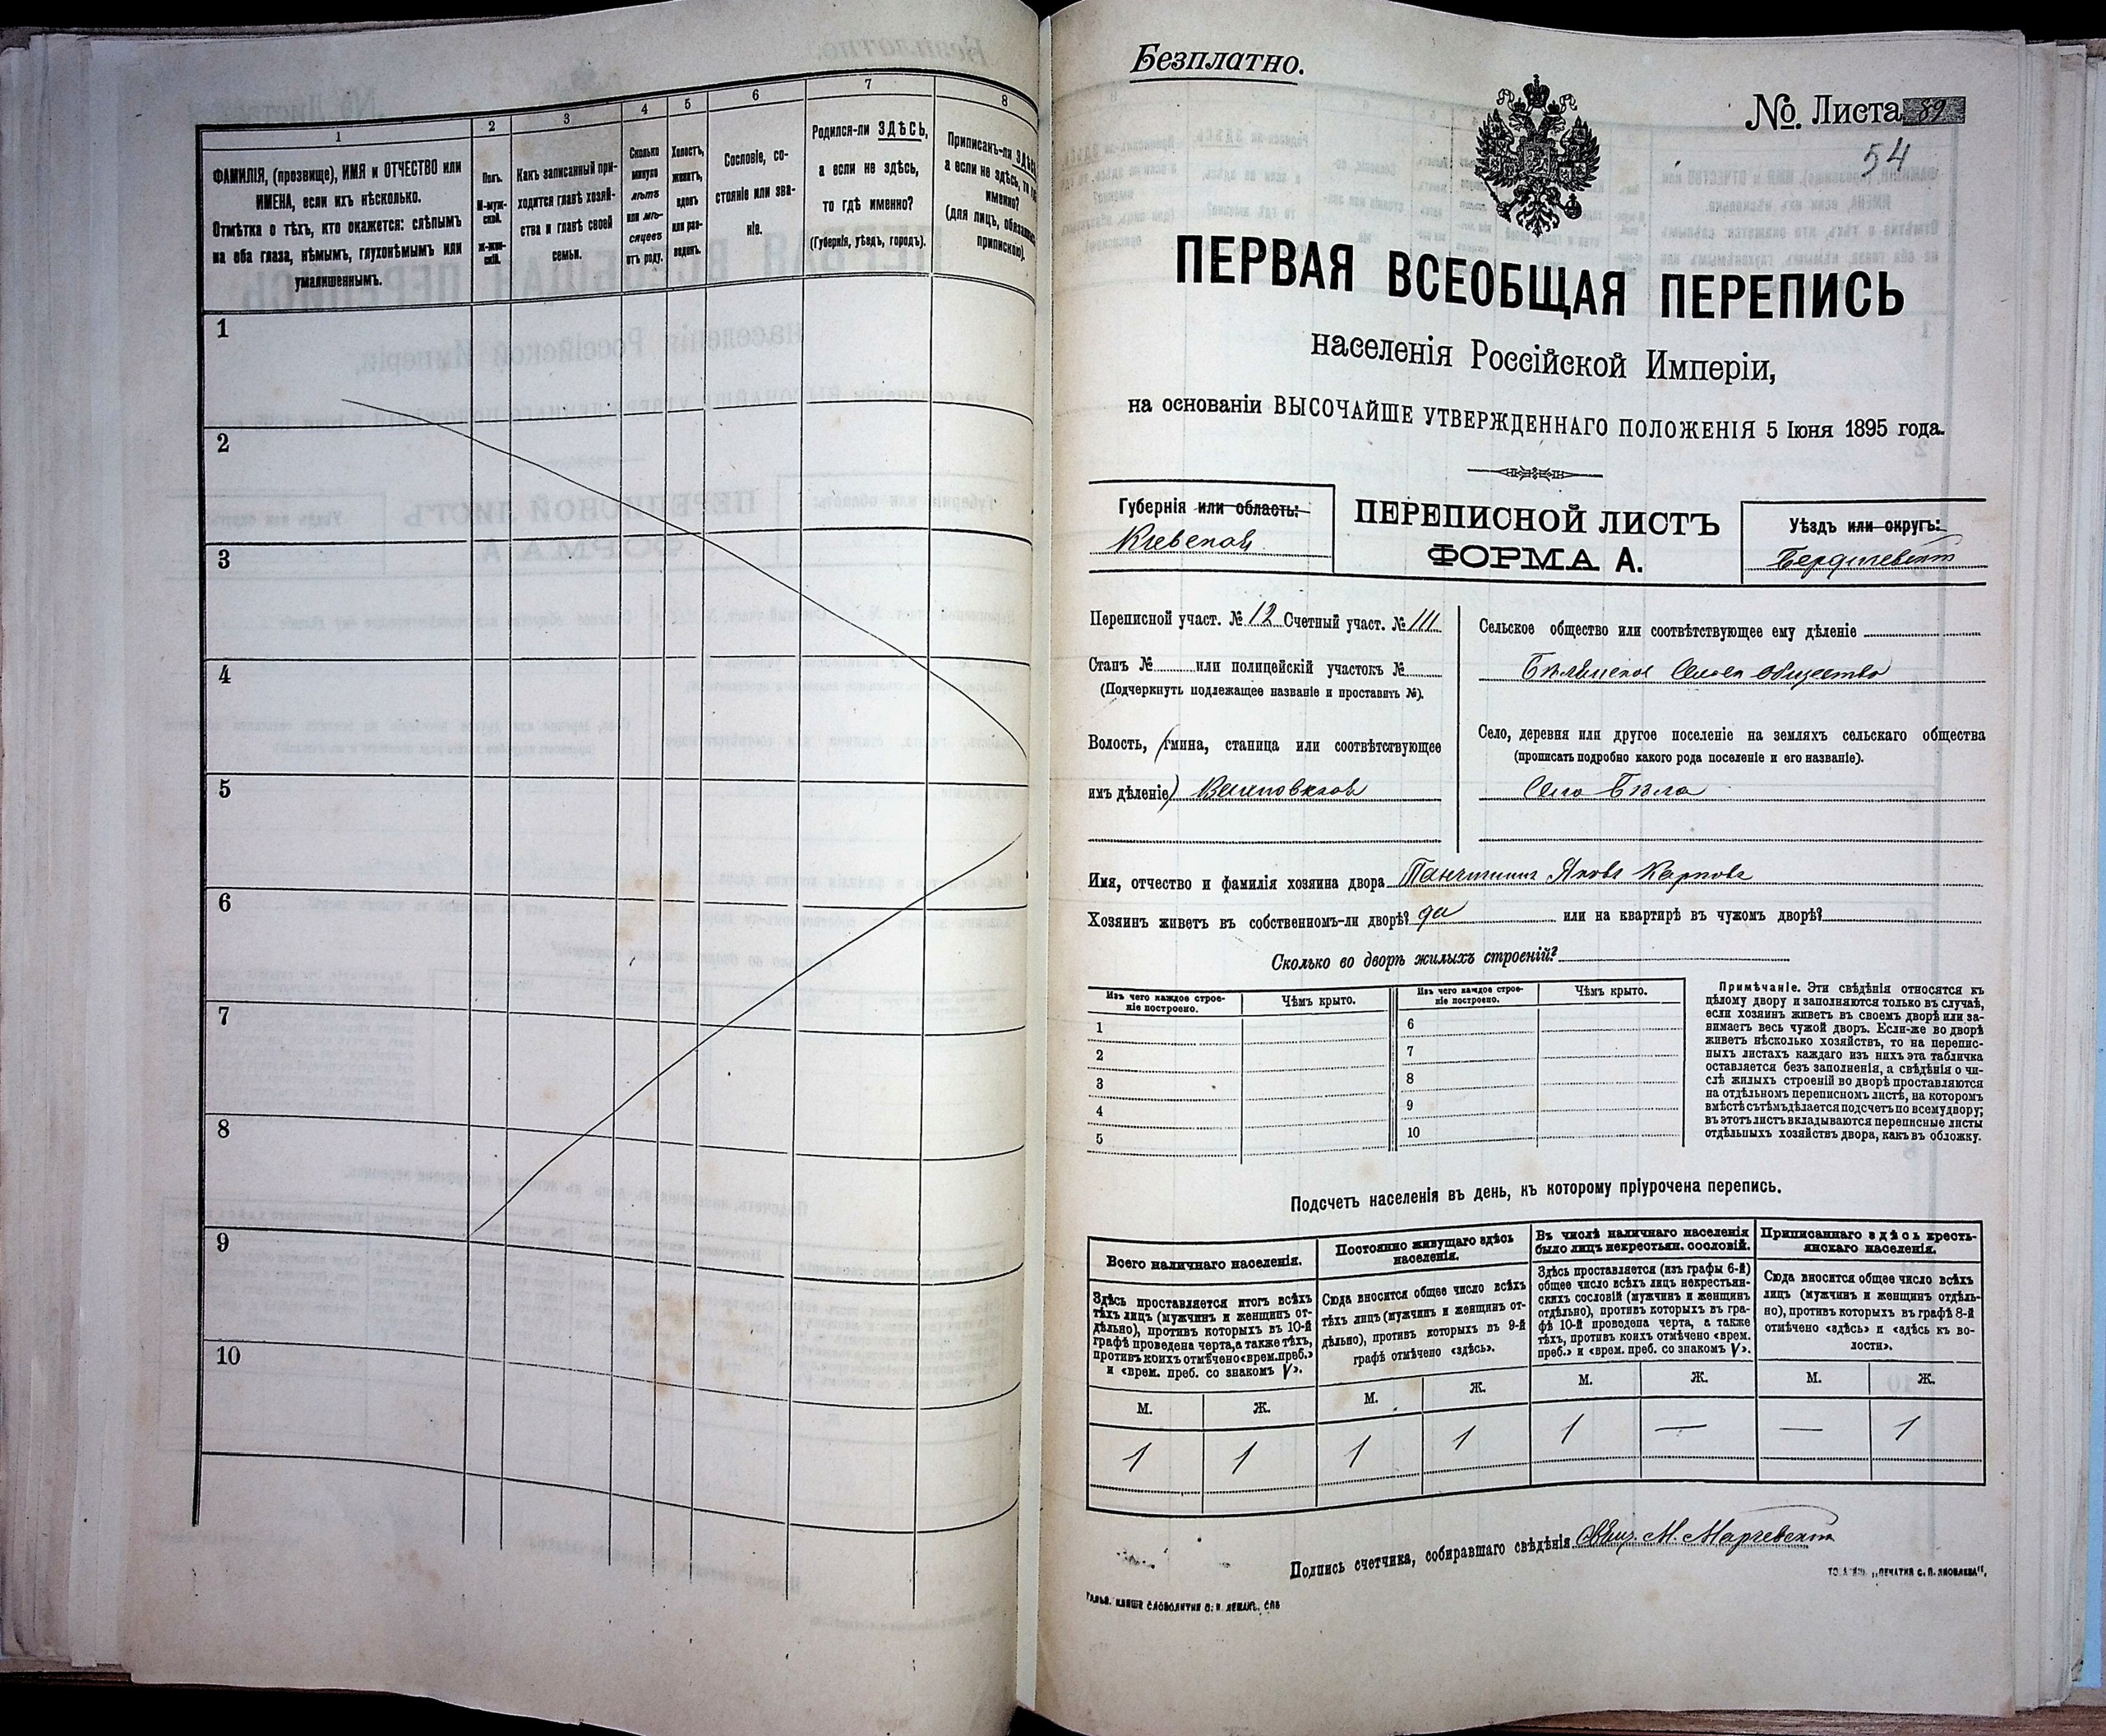 1
2
3
4
5
6
7
8
ФАМИЛІЯ, (прозвище), ИМЯ и ОТЧЕСТВО или
ИМЕНА, если ихъ нѣсколько.
Отмѣтка о тѣхъ, кто окажется: слѣпымъ
на оба глаза, нѣмымъ, глухонѣмымъ или
умалишеннымъ.
Полъ.
М-муж-
ской.
Ж-жен-
скій.
Какъ записанный при-
ходится главѣ хозяй-
ства и главѣ своей
семьи.
Сколько
минуло
лѣтъ
или мѣ-
сяцевъ
отъ роду.
Холостъ,
женатъ,
вдовъ
или раз-
веденъ.
Сословіе, со-
стояніе или зва-
ніе.
Родился-ли ЗДѢСЬ,
а если не здѣсь,
то гдѣ именно?
(Губернія, уѣздъ, городъ).
Приписанъ-ли ЗДѢСЬ,
а если не здѣсь, то гдѣ
именно?
(для лицъ, обязанныхъ
припискою).
1
2
3
4
5
6
7
8
9
10
Безплатно.
№ Листа 89
54
ПЕРВАЯ ВСЕОБЩАЯ ПЕРЕПИСЬ
населенія Россійской Имперіи,
на основаніи ВЫСОЧАЙШЕ УТВЕРЖДЕННАГО ПОЛОЖЕНІЯ 5 Іюня 1895 года.
Губернія или область:
Кіевской
ПЕРЕПИСНОЙ ЛИСТЪ
ФОРМА А.
Уѣздъ или округъ:
Бердичевскій
Переписной участ. № 12 Счетный участ. № III
Станъ № или полицейскій участокъ №
(Подчеркнуть подлежащее названіе и проставить №).
Волость, (гмина, станица или соотвѣтствующее
имъ дѣленіе)
Сельское общество или соотвѣтствующее ему дѣленіе
общество
Село, деревня или другое поселеніе на земляхъ сельскаго общества
(прописать подробно какого рода поселеніе и его названіе).
Село Бѣла
Имя, отчество и фамилія хозяина двора Яковъ Карповъ
Хозяинъ живетъ въ собственномъ-ли дворѣ? да или на квартирѣ въ чужомъ дворѣ?
Сколько во дворѣ жилыхъ строеній?
Изъ чего каждое строе-
ніе построено.
Чѣмъ крыто.
Изъ чего каждое строе-
ніе построено.
Чѣмъ крыто.
1
2
3
4
5
6
7
8
9
10
Примѣчаніе. Эти свѣдѣнія относятся къ
цѣлому двору и заполняются только въ случаѣ,
если хозяинъ живетъ въ своемъ дворѣ или за-
нимаетъ весь чужой дворъ. Если-же во дворѣ
живетъ нѣсколько хозяйствъ, то на перепис-
ныхъ листахъ каждаго изъ нихъ эта табличка
оставляется безъ заполненія, а свѣдѣнія о чи-
слѣ жилыхъ строеній во дворѣ проставляются
на отдѣльномъ переписномъ листѣ, на которомъ
вмѣстѣ съ тѣмъ дѣлается подсчетъ по всему двору;
въ этотъ листъ вкладываются переписные листы
отдѣльныхъ хозяйствъ двора, какъ въ обложку.
Подсчетъ населенія въ день, къ которому пріурочена перепись.
Всего наличнаго населенія.
Здѣсь проставляется итогъ всѣхъ
тѣхъ лицъ (мужчинъ и женщинъ от-
дѣльно), противъ которыхъ въ 10-й
графѣ проведена черта, а также тѣхъ,
противъ коихъ отмѣчено «врем. преб.»
и «врем. преб. со знакомъ V».
Постоянно живущаго здѣсь
населенія.
Сюда вносится общее число всѣхъ
тѣхъ лицъ (мужчинъ и женщинъ от-
дѣльно), противъ которыхъ въ 9-й
графѣ отмѣчено «здѣсь».
Въ числѣ наличнаго населенія
было лицъ некрестьян. сословій.
Здѣсь проставляется (изъ графы 6-й)
общее число всѣхъ лицъ некрестьян-
скихъ сословій (мужчинъ и женщинъ
отдѣльно), противъ которыхъ въ гра-
фѣ 10-й проведена черта, а также
тѣхъ, противъ коихъ отмѣчено «врем.
преб.» и «врем. преб. со знакомъ V».
Приписаннаго здѣсь кресть-
янскаго населенія.
Сюда вносится общее число всѣхъ
лицъ (мужчинъ и женщинъ отдѣль-
но), противъ которыхъ въ графѣ 8-й
отмѣчено «здѣсь» и «здѣсь къ во-
лости».
М. Ж. М. Ж. М. Ж. М. Ж.
1 1 1 1 1 — — 1
Подпись счетчика, собиравшаго свѣдѣнія Свящ. М.